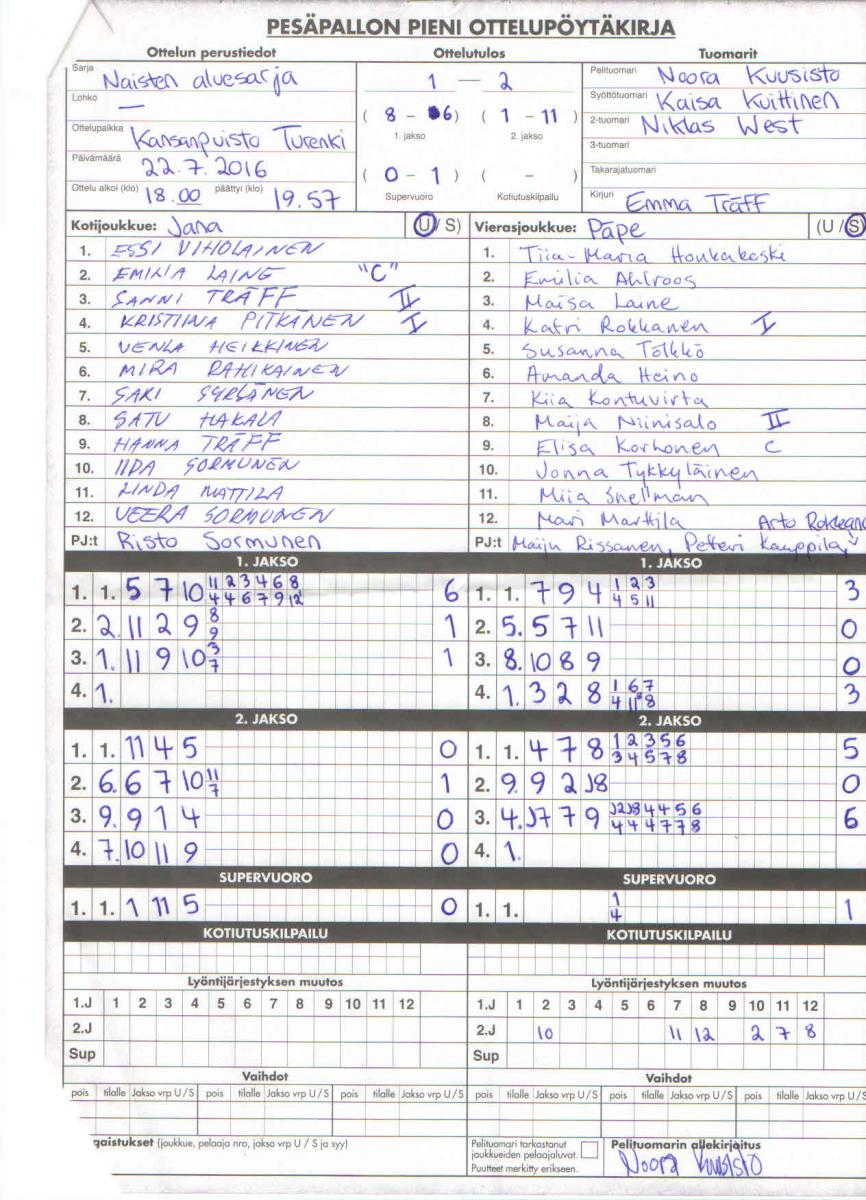 PESÄPALLON PIENI OTTELUPÖYTÄKIRJA
Ottelun perustiedot Ottelutulos Tuomarit
Sarja Naisten aluesarja 1 – 2 Pelituomari Noora Kuusisto
Lohko — Syöttötuomari Kaisa Kuittinen
Ottelupaikka Kansanpuisto Turenki ( 8 - 6 ) ( 1 - 11 ) 2-tuomari Niklas West
1. jakso 2. jakso 3-tuomari
Päivämäärä 22.7.2016 Takarajatuomari
Ottelu alkoi (klo) 18.00 päättyi (klo) 19.57 ( 0 - 1 ) ( - ) Kirjuri Emma Träff
Supervuoro Kotiutuskilpailu
Kotijoukkue: Jana (U/S) Vierasjoukkue: Päpe (U/S)
1. ESSI VIHOLAINEN 1. Tiia-Maria Honkakoski
2. EMILIA LAING "C" 2. Emilia Ahlroos
3. SANNI TRÄFF II 3. Maisa Laine
4. KRISTIINA PITKÄNEN I 4. Katri Rokkanen I
5. VENLA HEIKKINEN 5. Susanna Tölkkö
6. MIRA RAHIKAINEN 6. Amanda Heino
7. SAKI SYRJÄNEN 7. Kiia Kontuvirta
8. SATU HAKALA 8. Maija Niinisalo II
9. HANNA TRÄFF 9. Elisa Korhonen C
10. IIDA SORMUNEN 10. Jonna Tykkyläinen
11. LINDA MATTILA 11. Miia Snellman
12. VEERA SORMUNEN 12. Mari Marttila Arto
PJ:t Risto Sormunen PJ:t Maiju Rissanen, Petteri Kauppila,
1. JAKSO 1. JAKSO
1. 1. 5 7 10 11 2 3 4 6 8 6 1. 1. 7 9 4 1 2 3 3
4 4 6 7 9 12 4 5 11
2. 2. 11 2 9 8 1 2. 5. 5 7 11 0
9
3. 1. 11 9 10 3 1 3. 8. 10 8 9 0
7
4. 1. 4. 1. 3 2 8 1 6 7 3
4 11 8
2. JAKSO 2. JAKSO
1. 1. 11 4 5 0 1. 1. 4 7 8 1 2 3 5 6 5
3 4 5 7 8
2. 6. 6 7 10 11 1 2. 9. 9 2 J8 0
7
3. 9. 9 1 4 0 3. 4. J7 7 9 J2 J8 4 4 5 6 6
4 4 4 7 7 8
4. 7. 10 11 9 0 4. 1.
SUPERVUORO SUPERVUORO
1. 1. 1 11 5 0 1. 1. 1 1
4
KOTIUTUSKILPAILU KOTIUTUSKILPAILU
Lyöntijärjestyksen muutos Lyöntijärjestyksen muutos
1.J 1 2 3 4 5 6 7 8 9 10 11 12 1.J 1 2 3 4 5 6 7 8 9 10 11 12
2.J 2.J 10 11 12 2 7 8
Sup Sup
Vaihdot Vaihdot
pois tilalle Jakso vrp U/S pois tilalle Jakso vrp U/S pois tilalle Jakso vrp U/S pois tilalle Jakso vrp U/S pois tilalle Jakso vrp U/S pois tilalle Jakso vrp U/S
gaistukset (joukkue, pelaaja nro, jakso vrp U / S ja syy) Pelituomari tarkastanut joukkueiden pelaajaluvat. Puutteet merkitty erikseen. Pelituomarin allekirjoitus
Noora Kuusisto